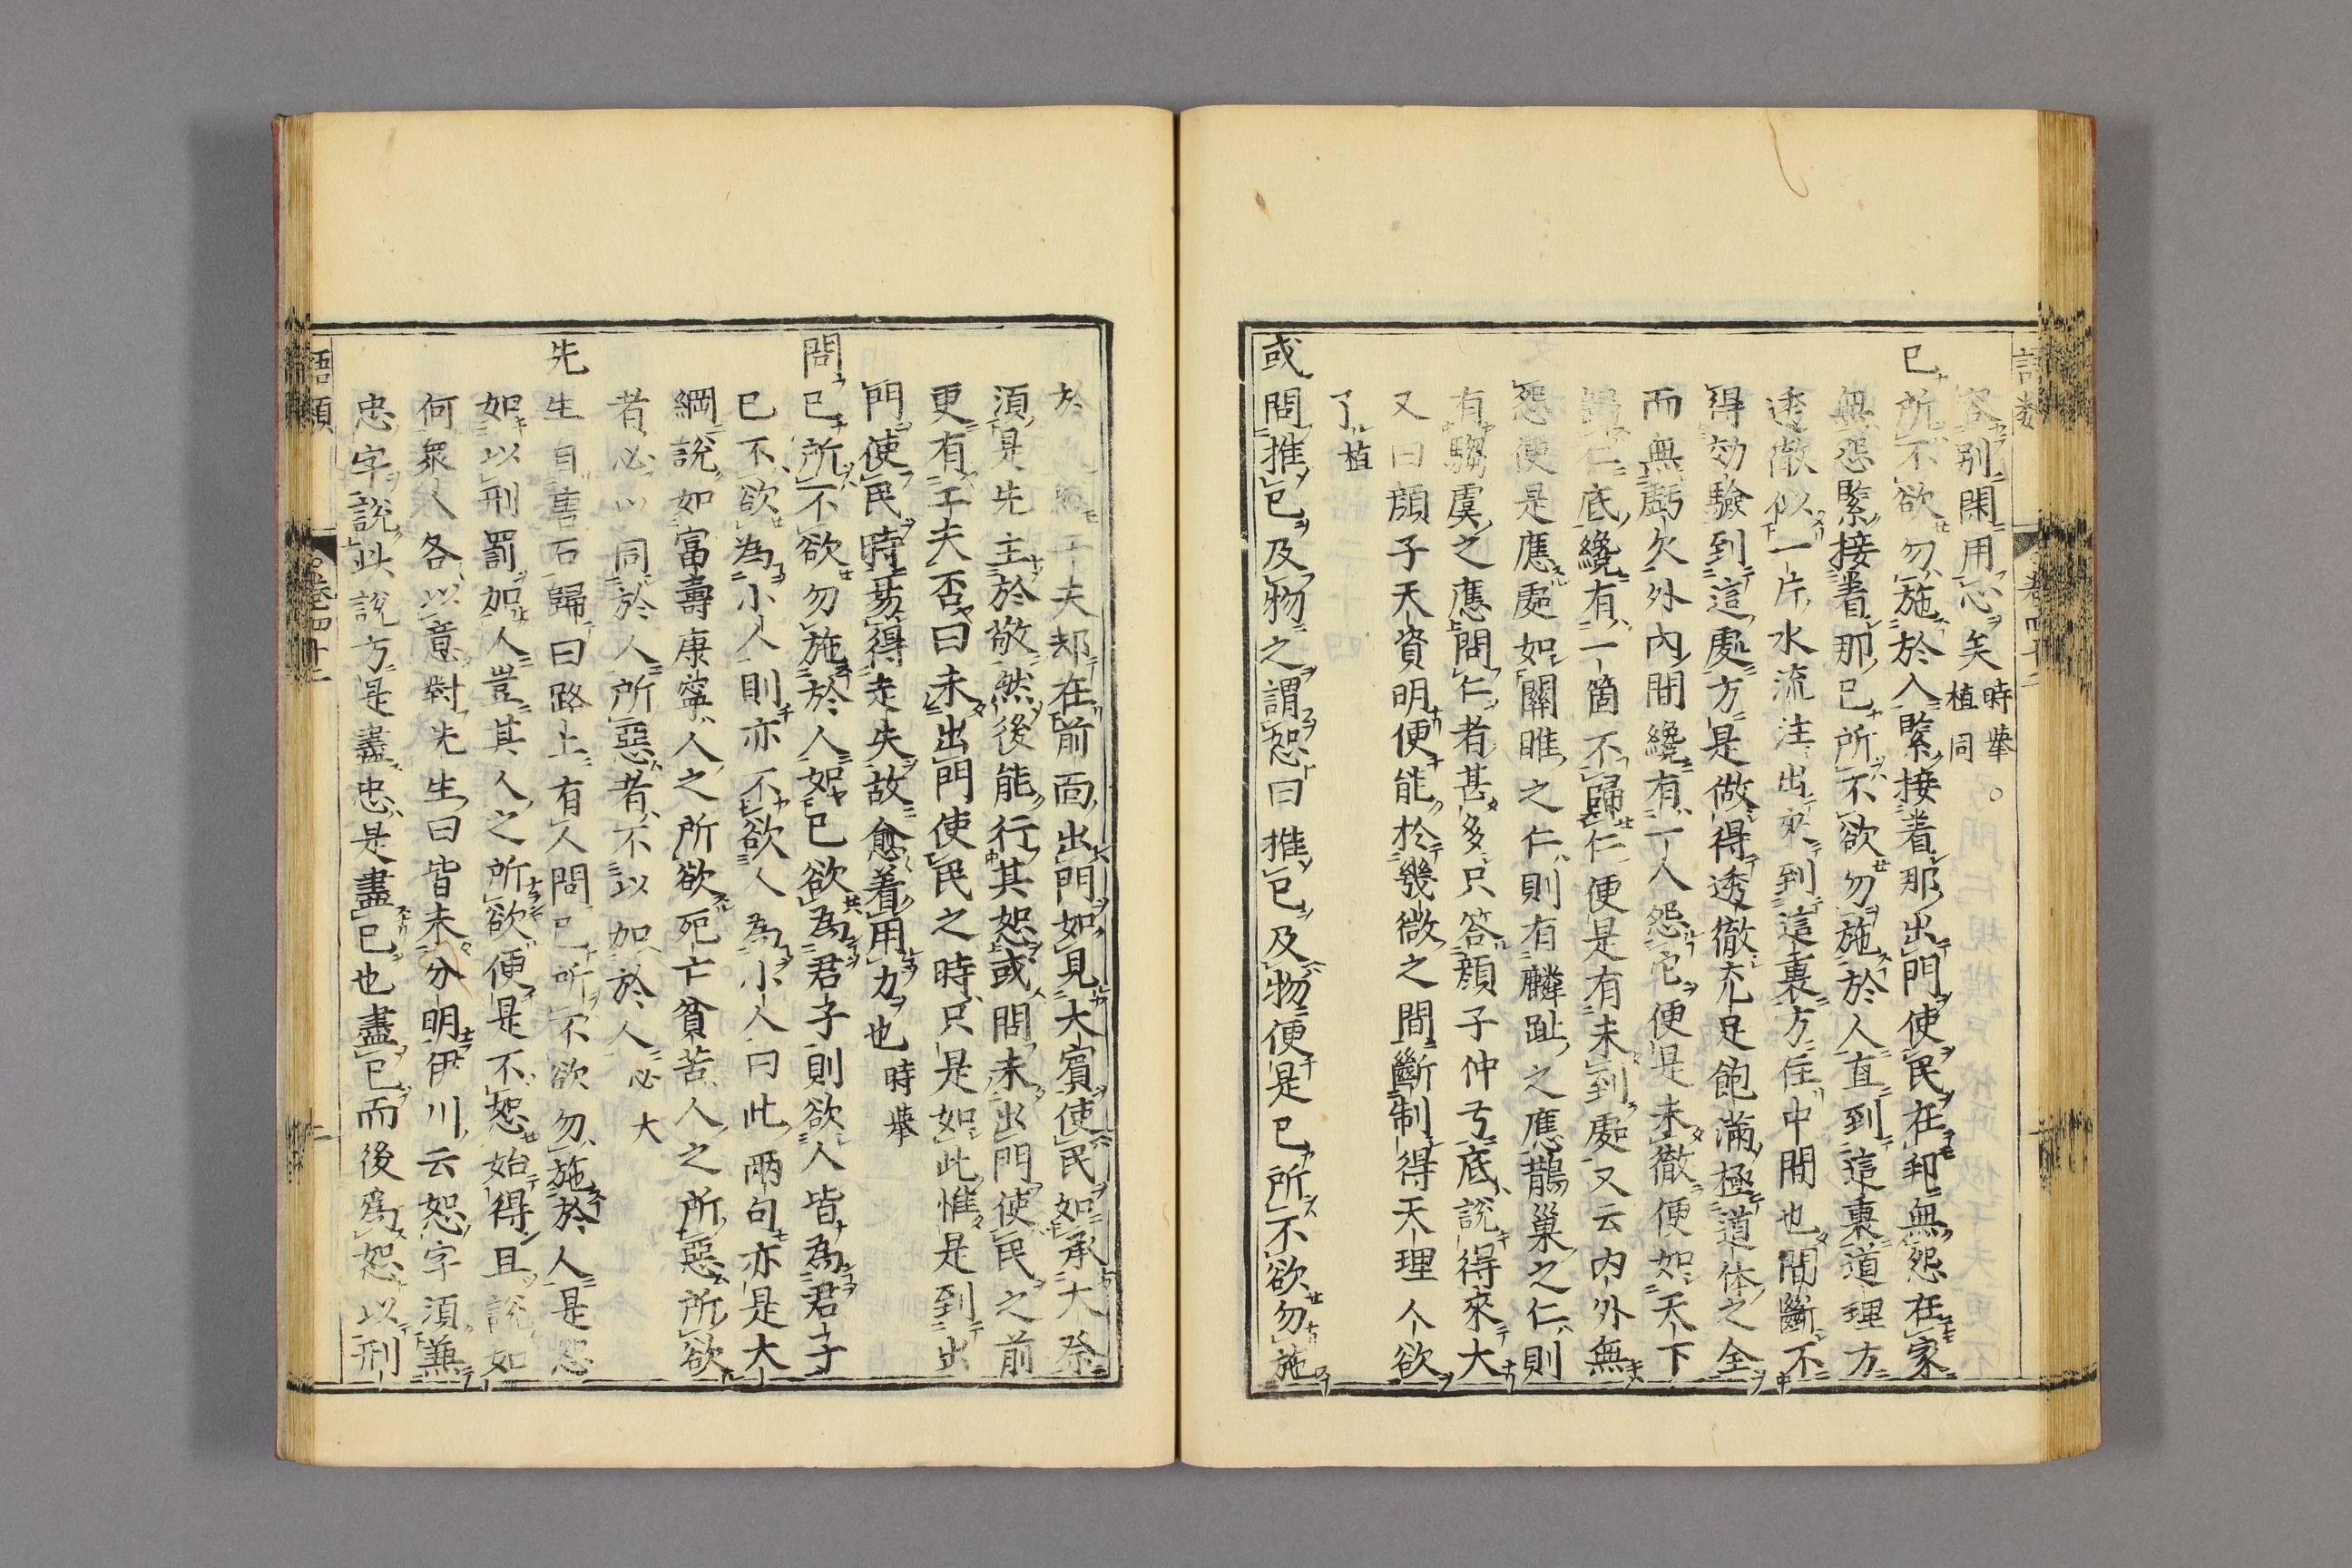 語類
卷四十二
容別閑用心矣時擧。植同
己所不欲勿施於人緊接着那出門使民在邦無怨在家
無怨緊接着那己所不欲勿施於人直到這裏道理方
透徹似一片水流注出來到這裏方住中間也間斷不
得効驗到這處方是做得透徹充足飽滿極道体之全
而無虧欠外內間纔有一人怨它便是未徹便如天下
歸仁底纔有一箇不歸仁便是有未到處又云內外無
怨便是應處如關睢之仁則有麟趾之應鵲巢之仁則
有騶虞之應問仁者甚多只答顔子仲弓底說得來大
又曰顔子天資明便能於幾微之間斷制得天理人欲
了植
或問推己及物之謂恕曰推己及物便是己所不欲勿施
於 工夫却在前面出門如見大賓使民如承大祭
須是先主於敬然後能行其恕或問未出門使民之前
更有工夫否曰未出門使民之時只是如此惟是到出
門使民時易得走失故愈着用力也時擧
問己所不欲勿施於人如己欲為君子則欲人皆為君子
己不欲為小人則亦不欲人為小人曰此兩句亦是大
綱說如富壽康寧人之所欲死亡貧苦人之所惡所欲
者必以同於人所惡者不以加於人必大
先生自唐石歸曰路上有人問己所不欲勿施於人是恕
如以刑罰加人豈其人之所欲便是不恕始得且說如
何衆人各以意對先生曰皆未分明伊川云恕字須兼
忠字說此說方是盡忠是盡己也盡己而後爲恕以刑
語類
卷四十二
十一